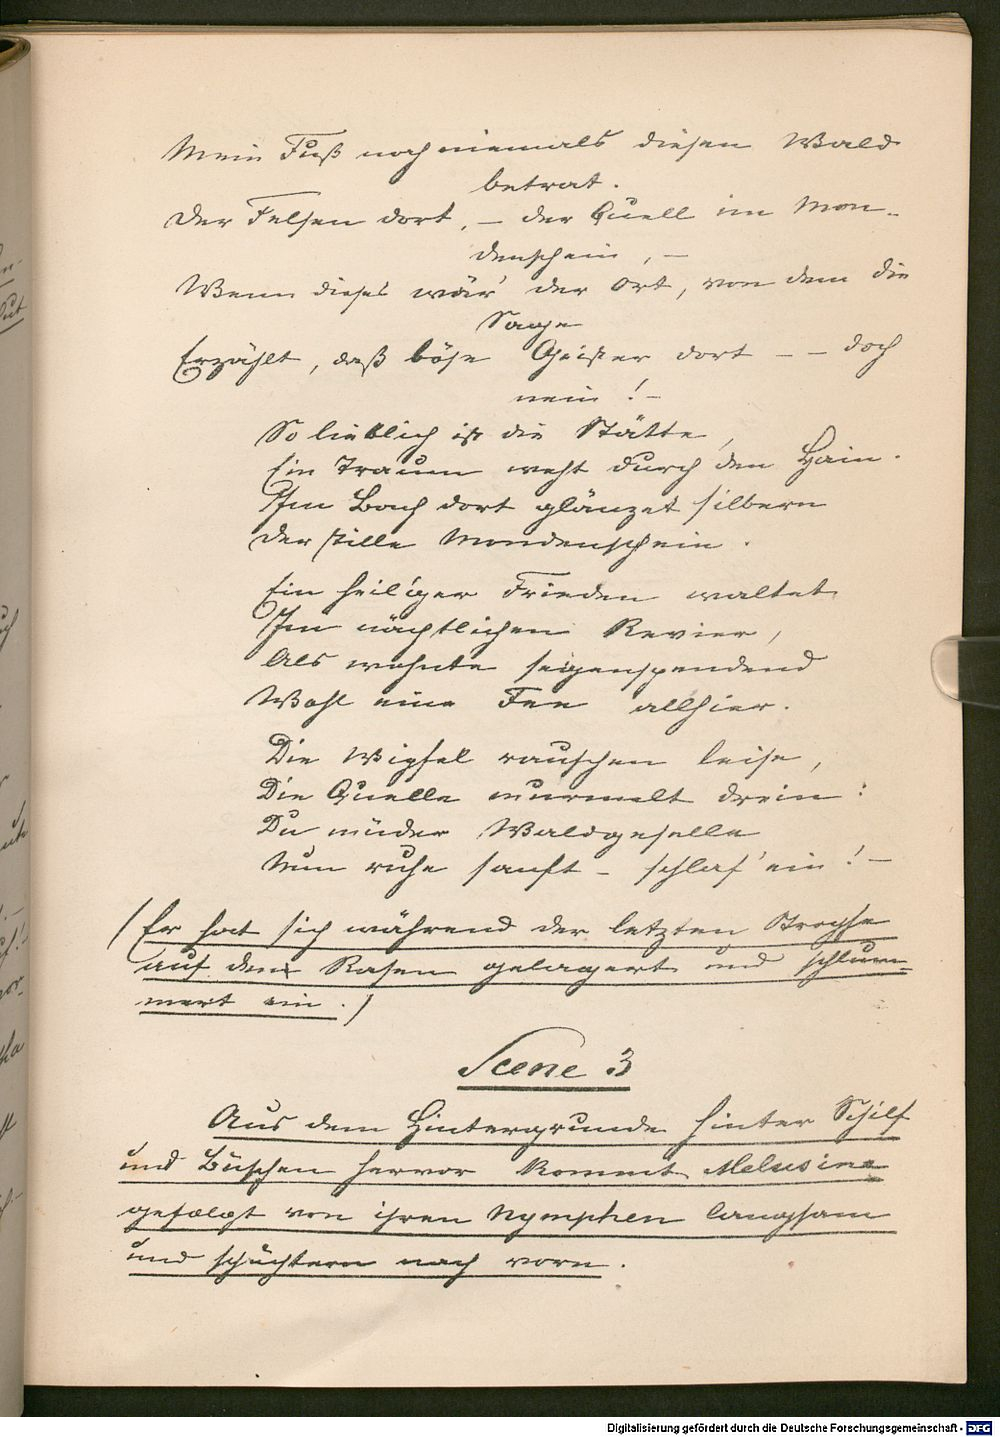 Mein Fuß noch niemals diesen Wald
betrat.
Der Felsen dort, – der Quell im Mon-
denschein, –
Wenn dieses wär' der Ort, von dem die
Sage
Erzählt, daß böse Geister dort – – doch
nein! –
So lieblich ist die Stätte,
Ein Traum weht durch den Hain.
Im Bach dort glänzet silbern
Der stille Mondenschein.
Ein heil'ger Frieden waltet
Im nächtlichen Revier,
Als wohnte segenspendend
Wohl eine Fee allhier.
Die Wipfel rauschen leise,
Die Quelle murmelt drein:
Du müder Waldgeselle
Nun ruhe sanft – schlaf' ein! –
(Er hat sich während der letzten Strophe
auf dem Rasen gelagert und schlum-
mert ein.)
Scene 3
Aus dem Hintergrunde hinter Schilf
und Büschen hervor kommt Melusine
gefolgt von ihren Nymphen langsam
und schüchtern nach vorn.
Digitalisierung gefördert durch die Deutsche Forschungsgemeinschaft - DFG